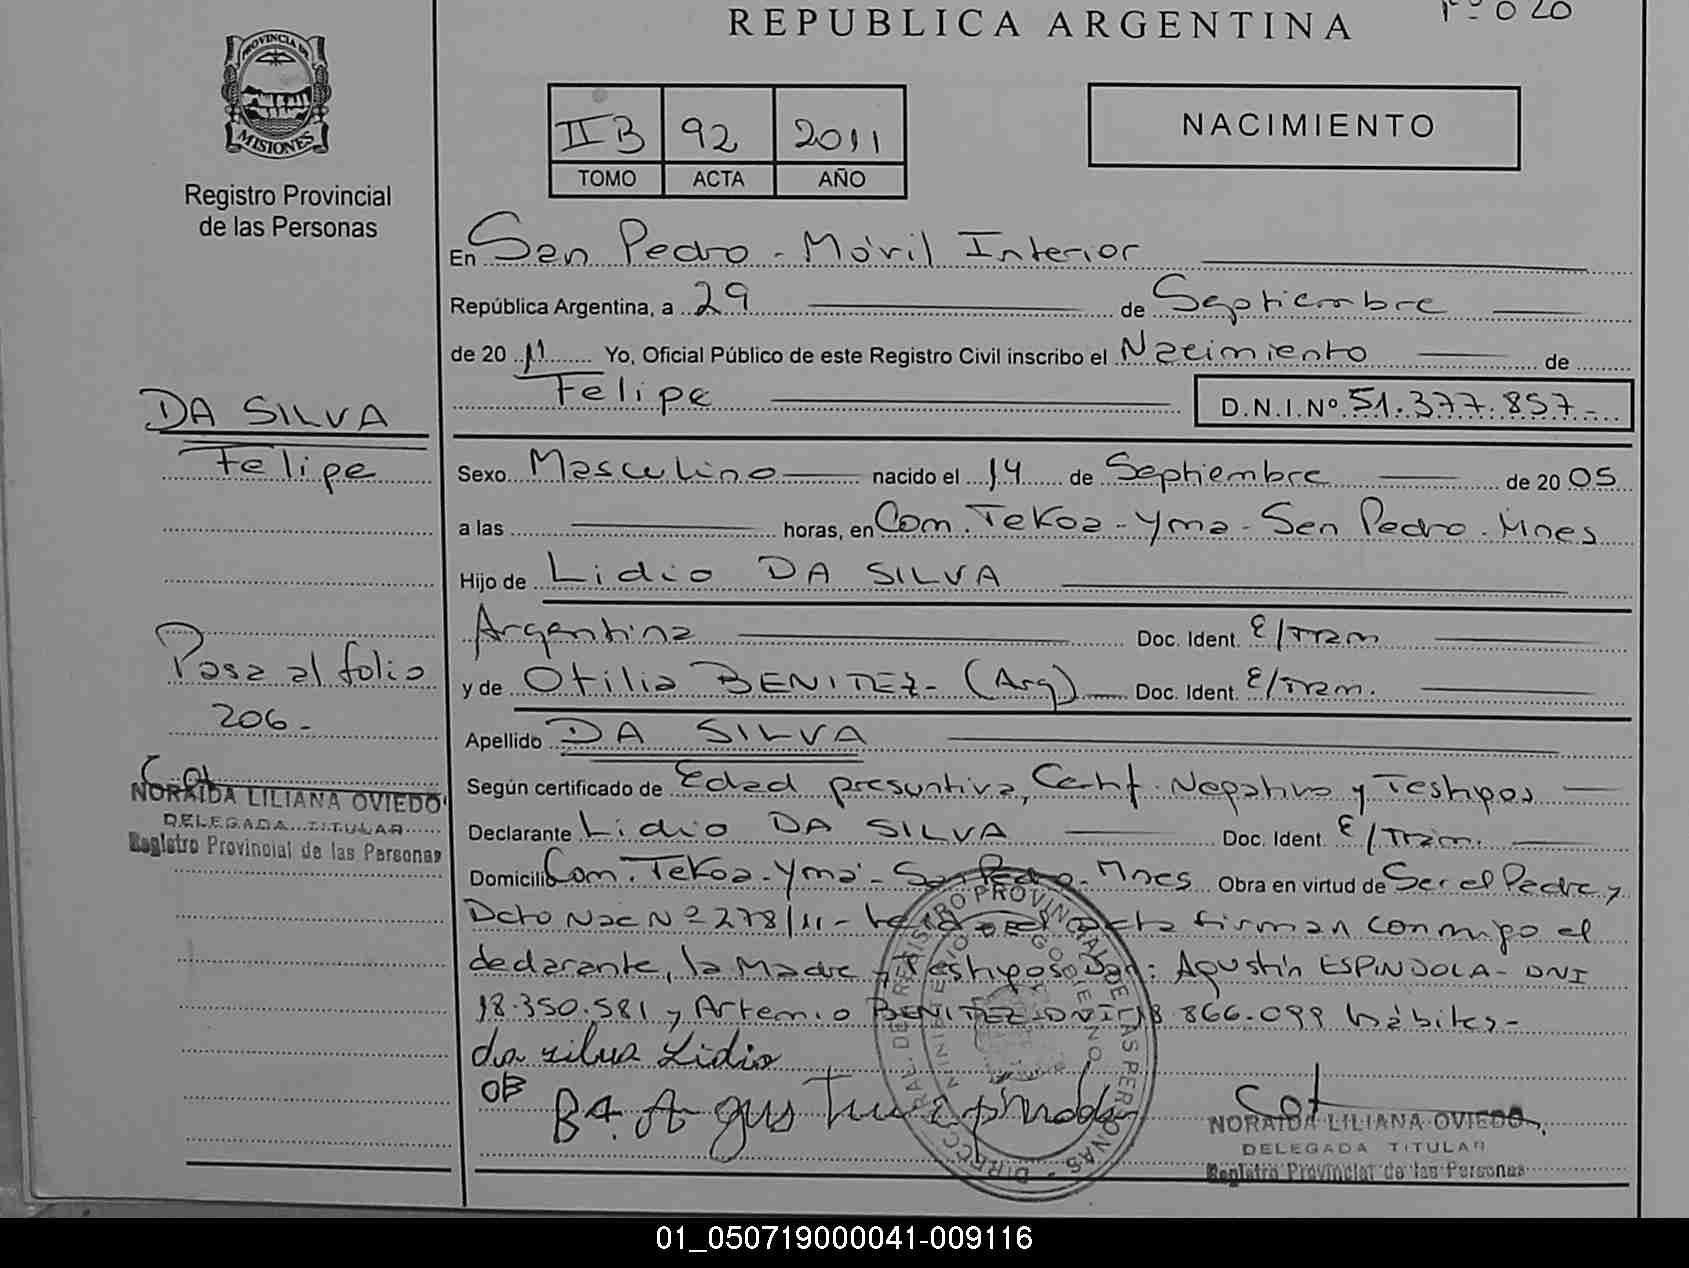 REPUBLICA ARGENTINA
Fº 020
PROVINCIA DE
MISIONES
Registro Provincial
de las Personas
IIB 92 2011
TOMO ACTA AÑO
NACIMIENTO
En San Pedro - Móvil Interior
República Argentina, a 29 de Septiembre
de 20 11 Yo, Oficial Público de este Registro Civil inscribo el Nacimiento de
Felipe D.N.I.Nº 51.377.857-
DA SILVA
Felipe
Sexo Masculino nacido el 14 de Septiembre de 20 05
a las horas, en Com. Tekoa-Yma-San Pedro. Mnes
Hijo de Lidio DA SILVA
Argentina Doc. Ident. E/Tram
y de Otilia BENITEZ- (Arg) Doc. Ident. E/Tram.
Pasa al folio
206-
Apellido DA SILVA
Según certificado de Edad presuntiva, Cert. Negativo y Testigos
Declarante Lidio DA SILVA Doc. Ident. E/Tram.
Domicilio Com. Tekoa-Yma-San Pedro-Mnes Obra en virtud de Ser el Padre y
Dcto Nac Nº 278/11- leida el acta firman conmigo el
declarante, la Madre y Testigos Son: Agustín ESPINDOLA- DNI
18.350.581 y Artemio BENITEZ-DNI 18.866.099 hábiles-
da silva Lidio
OB B.A. Agustin Espindola
NORAIDA LILIANA OVIEDO
DELEGADA TITULAR
Registro Provincial de las Personas
NORAIDA LILIANA OVIEDO
DELEGADA TITULAR
Registro Provincial de las Personas
01_050719000041-009116